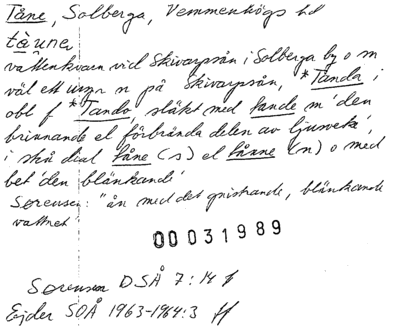 Tåne, Solberga, Vemmenhögs hd
tåune
vattenkvarn vid Skivarpsån i Solberga by o m
väl ett urspr n på Skivarpsån, *Tanda i
obl f *Tando, släkt med tande m 'den
brinnande el förbrända delen av ljusveke',
i skå dial tåne (s) el tånne (n) o med
bet 'den blänkande'
Sørensen: "ån med det gnistrande, blänkande
vattnet"
00031989
Sørensen DSÅ 7:14 f
Ejder SOÅ 1963-1964:3 ff